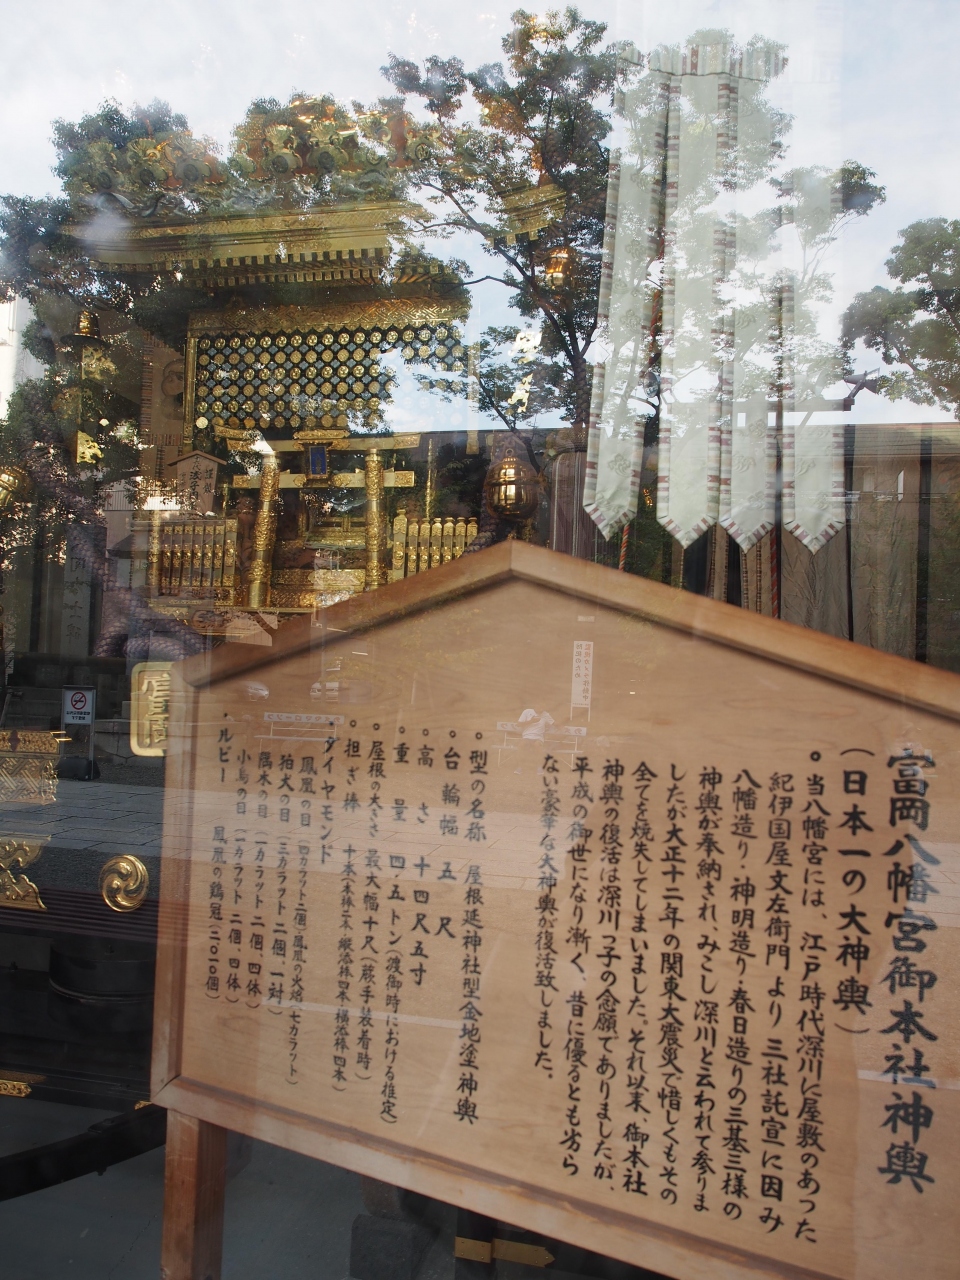 富岡八幡宮御本社神輿
(日本一の大神輿)
。当八幡宮には、江戸時代深川に屋敷のあった
紀伊国屋文左衛門より三社託宣に因み
八幡造り・神明造り・春日造りの三基三様の
神輿が奉納され、みこし深川と云われて参りま
したが大正十二年の関東大震災で惜しくもその
全てを焼失してしまいました。それ以来、御本社
神輿の復活は深川っ子の念願でありましたが、
平成の御世になり漸く、昔に優るとも劣ら
ない豪華な大神輿が復活致しました。
。型の名称 屋根延神社型金地塗神輿
。台輪幅 五尺
。高さ 十四尺五寸
。重量 四・五トン(渡御時における推定)
。屋根の大きさ 最大幅十尺(蕨手装着時)
。担ぎ棒
・ダイヤモンド
鳳凰の目(四カラット二個)鳳凰の火焔(七カラット)
狛犬の目(三カラット二個、一対)
隅木の目(一カラット二個、四体)
小鳥の目(一カラット二個、四体)
・ルビー 鳳凰の鶏冠(二〇一〇個)